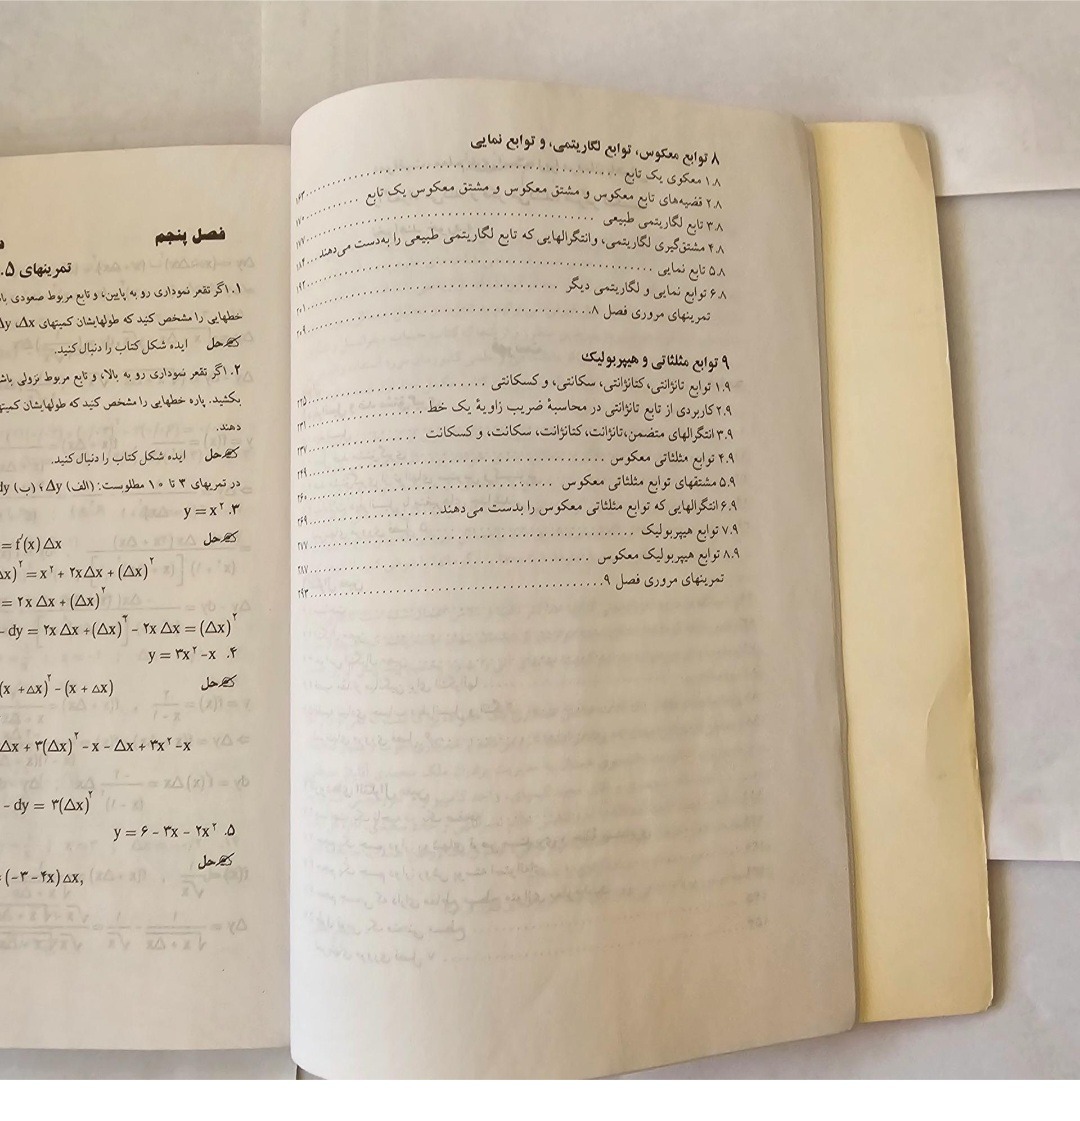 ۸ توابع معکوس، توابع لگاریتمی، و توابع نمایی
۱.۸ معکوی یک تابع ........ ۱۶۳
۲.۸ قضیه‌های تابع معکوس و مشتق معکوس و مشتق معکوس یک تابع ........ ۱۷۰
۳.۸ تابع لگاریتمی طبیعی ........ ۱۷۷
۴.۸ مشتق‌گیری لگاریتمی، و انتگرالهایی که تابع لگاریتمی طبیعی را به‌دست می‌دهند ... ۱۸۴
۵.۸ تابع نمایی ........ ۱۹۲
۶.۸ توابع نمایی و لگاریتمی دیگر ........ ۲۰۱
تمرینهای مروری فصل ۸ ........ ۲۰۹
۹ توابع مثلثاتی و هیپربولیک
۱.۹ توابع تانژانتی، کتانژانتی، سکانتی، و کسکانتی ........ ۲۲۵
۲.۹ کاربردی از تابع تانژانتی در محاسبهٔ ضریب زاویهٔ یک خط ........ ۲۳۱
۳.۹ انتگرالهای متضمن،تانژانت، کتانژانت، سکانت، و کسکانت ........ ۲۳۷
۴.۹ توابع مثلثاتی معکوس ........ ۲۴۹
۵.۹ مشتقهای توابع مثلثاتی معکوس ........ ۲۶۰
۶.۹ انتگرالهایی که توابع مثلثاتی معکوس را بدست می‌دهند ........ ۲۶۹
۷.۹ توابع هیپربولیک ........ ۲۷۷
۸.۹ توابع هیپربولیک معکوس ........ ۲۸۷
تمرینهای مروری فصل ۹ ........ ۲۹۳
فصل پنجم
تمرینهای ۵.
۱.۱گر تقعر نموداری رو به پایین، و تابع مربوط صعودی
خطهایی را مشخص کنید که طولهایشان کمیتهای Δx، Δy
حل ایده شکل کتاب را دنبال کنید.
۲.۱گر تقعر نموداری رو به بالا، و تابع مربوط نزولی
بکشید. پاره خطهایی را مشخص کنید که طولهایشان
دهند.
حل ایده شکل کتاب را دنبال کنید.
در تمریهای ۳ تا ۱۰ مطلوست: (الف) Δy ؛ (ب) dy
۳. y = x²
حل
= f′(x) Δx
Δx)² = x² + ۲xΔx + (Δx)²
= ۲x Δx + (Δx)²
- dy = ۲x Δx + (Δx)² - ۲x Δx = (Δx)²
۴. y = ۳x² - x
حل
(x + Δx)² - (x + Δx)
Δx + ۳(Δx)² - x - Δx + ۳x² - x
- dy = ۳(Δx)²
۵. y = ۶ - ۳x - ۲x²
حل
= (-۳ - ۴x) Δx,